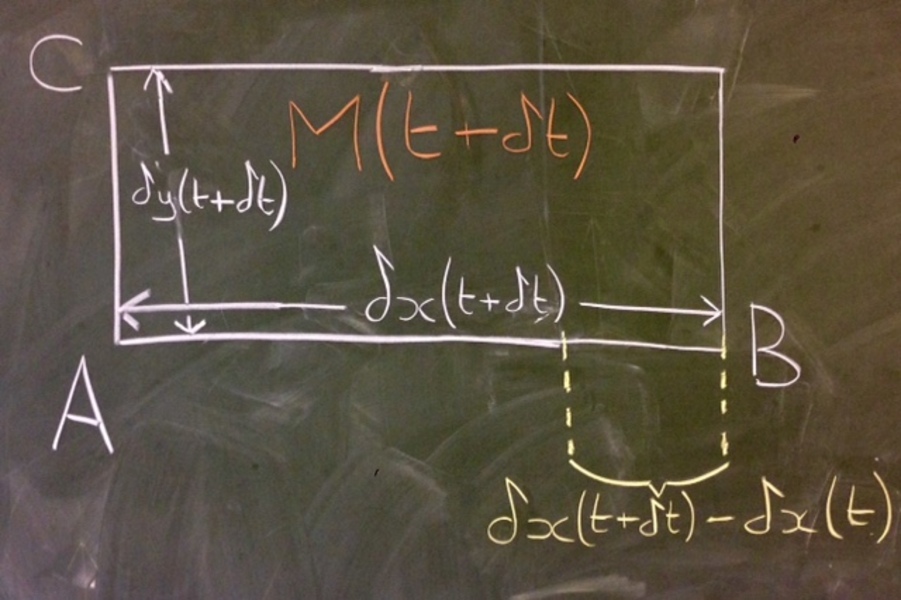 C
M(t+δt)
δy(t+δt)
δx(t+δt)
B
A
δx(t+δt) - δx(t)